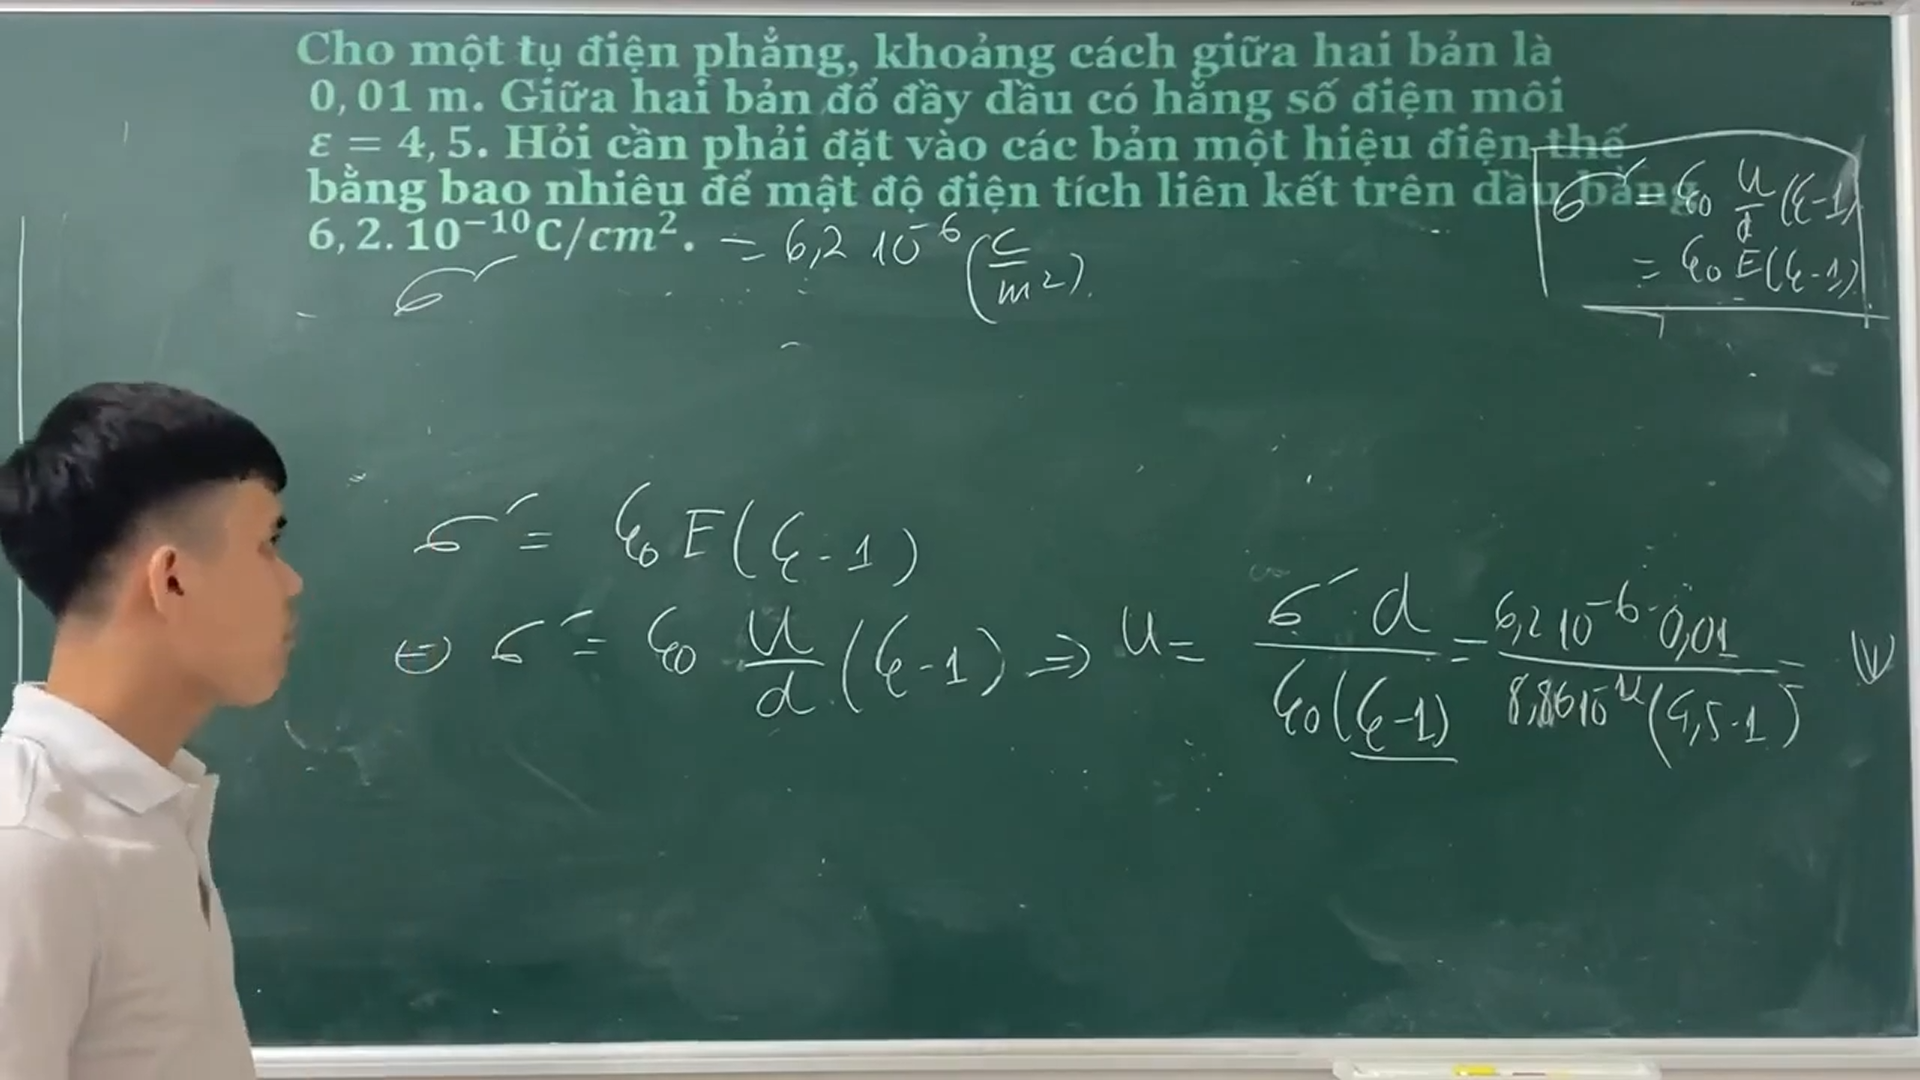 Cho một tụ điện phẳng, khoảng cách giữa hai bản là
0,01 m. Giữa hai bản đổ đầy dầu có hằng số điện môi
ε = 4,5. Hỏi cần phải đặt vào các bản một hiệu điện thế
bằng bao nhiêu để mật độ điện tích liên kết trên dầu bằng
6,2.10⁻¹⁰C/cm². = 6,2 10⁻⁶ (C/m²).
σ'
σ' = ε₀ U/d (ε-1)
= ε₀ E(ε-1)
σ' = ε₀ E(ε-1)
⇔ σ' = ε₀ U/d (ε-1) ⇒ U = σ'.d / ε₀(ε-1) = 6,2 10⁻⁶.0,01 / 8,86 10⁻¹² (4,5-1) = (V)